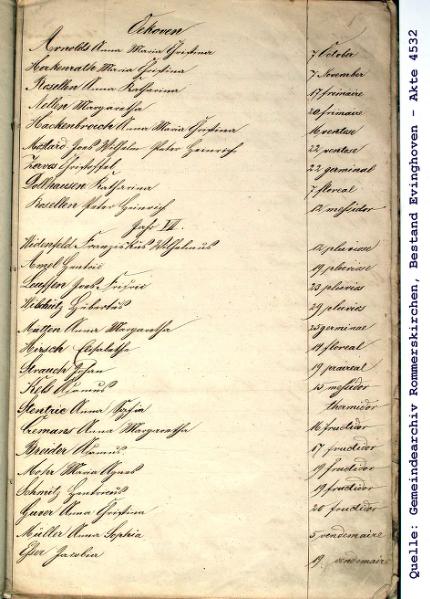 Eckoven
Arnolds Anna Maria Christina 7 October
Herkenrath Maria Christina 7 November
Rosellen Anna Katharina 17 frimaire
Nellen Margaretha 20 frimaire
Hackenbroich Anna Maria Christina 16 ventose
Wilhelm Peter Heinrich 22 ventose
Zerres Christoffel 22 germinal
Dollhausen Katharina 7 floreal
Rosellen Peter Heinrich 12 messidor
Jahr
Widenfeld Franziskus Wilhelmus 12 pluviose
19 pluviose
23 pluvios
Hubertus 29 pluvios
Mütten Anna Margaretha 23 germinal
Hirsch Elisabetha 19 floreal
Strauch Johan 19 prairal
Kels 15 messidor
Anna Sofia thermidor
Cremans Anna Margaretha 16 fructidor
Breider 17 fructidor
Mohr Maria Agnes 19 fructidor
Schmitz Henricus 19 fructidor
Anna Christina 20 fructidor
Müller Anna Sophia 5 vendemaire
Esser Jacobus 19 vendemaire
Quelle: Gemeindearchiv Rommerskirchen, Bestand Evinghoven - Akte 4532